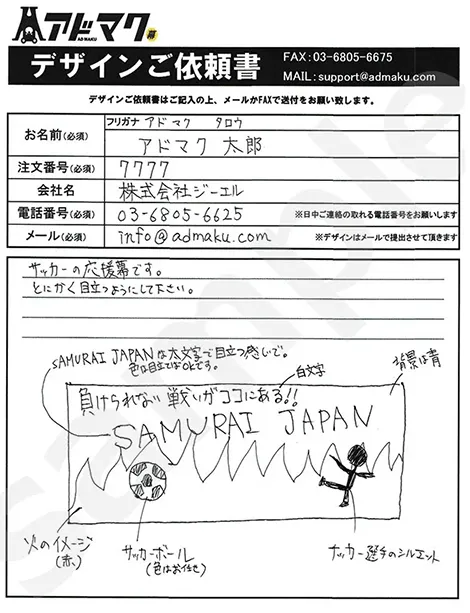 アドマク幕
AD-MAKU
デザインご依頼書
FAX:03-6805-6675
MAIL:support@admaku.com
デザインご依頼書はご記入の上、メールかFAXで送付をお願い致します。
フリガナ アドマク タロウ
お名前(必須) アドマク 太郎
注文番号(必須) 7777
会社名 株式会社ジーエル
電話番号(必須) 03-6805-6625 ※日中ご連絡の取れる電話番号をお願いします
メール(必須) info@admaku.com ※デザインはメールで提出させて頂きます
サッカーの応援幕です。
とにかく目立つようにして下さい。
SAMURAI JAPANは太文字で目立つ感じで。
色は目立てばOKです。
白文字
背景は青
負けられない戦いがココにある!!
SAMURAI JAPAN
火のイメージ
(赤)
サッカーボール
(色はお任せ)
サッカー選手のシルエット
sample